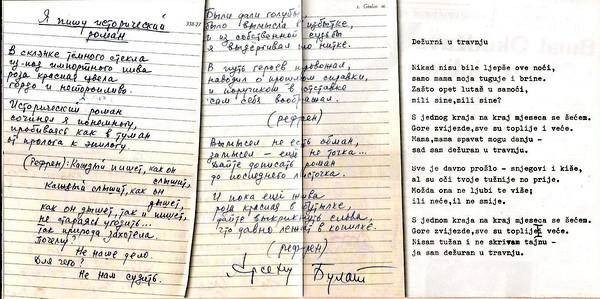 Я пишу исторический
роман
В склянке тёмного стекла
из-под импортного пива
роза красная цвела
гордо и неторопливо.
Исторический роман
сочинял я понемногу,
пробиваясь как в туман
от пролога к эпилогу.
(Рефрен): Каждый пишет, как он
слышит,
Каждый слышит, как он
дышет,
как он дышет, так и пишет,
не стараясь угодить...
так природа захотела
Почему?
Не наше дело.
Для чего?
Не нам судить.
338-27
s. Giulio m.
Были дали голубы,
было вымысла в избытке,
и из собственной судьбы
я выдёргивал по нитке.
В путь героев провожал,
наводил о прошлом справки,
и поручиком в отставке
сам себя воображал.
(рефрен)
Вымысел не есть обман,
замысел - ещё не точка...
дайте дописать роман
до последнего листочка.
И пока ещё жива
роза красная в бутылке,
дайте выкрикнуть слова,
что давно лежат в копилке.
(рефрен)
Арсену Булат
Dežurni u travnju
Nikad nisu bile ljepše ove noći,
samo mama moja tuguje i brine.
Zašto opet lutaš u samoći,
mili sine,mili sine?
S jednog kraja na kraj mjeseca se šećem.
Gore zvijezde,sve su toplije i veće.
Mama,mama spavat mogu danju -
sad sam dežuran u travnju.
Sve je davno prošlo - snjegovi i kiše,
al su oči tvoje tužnije no prije.
Možda ona ne ljubi te više;
ili neće,il ne smije.
S jednom kraja na kraj mjeseca se šećem.
Gore zvijezde,sve su toplije veće.
Nisam tužan i ne skrivam tajnu -
ja sam dežuran u travnju.